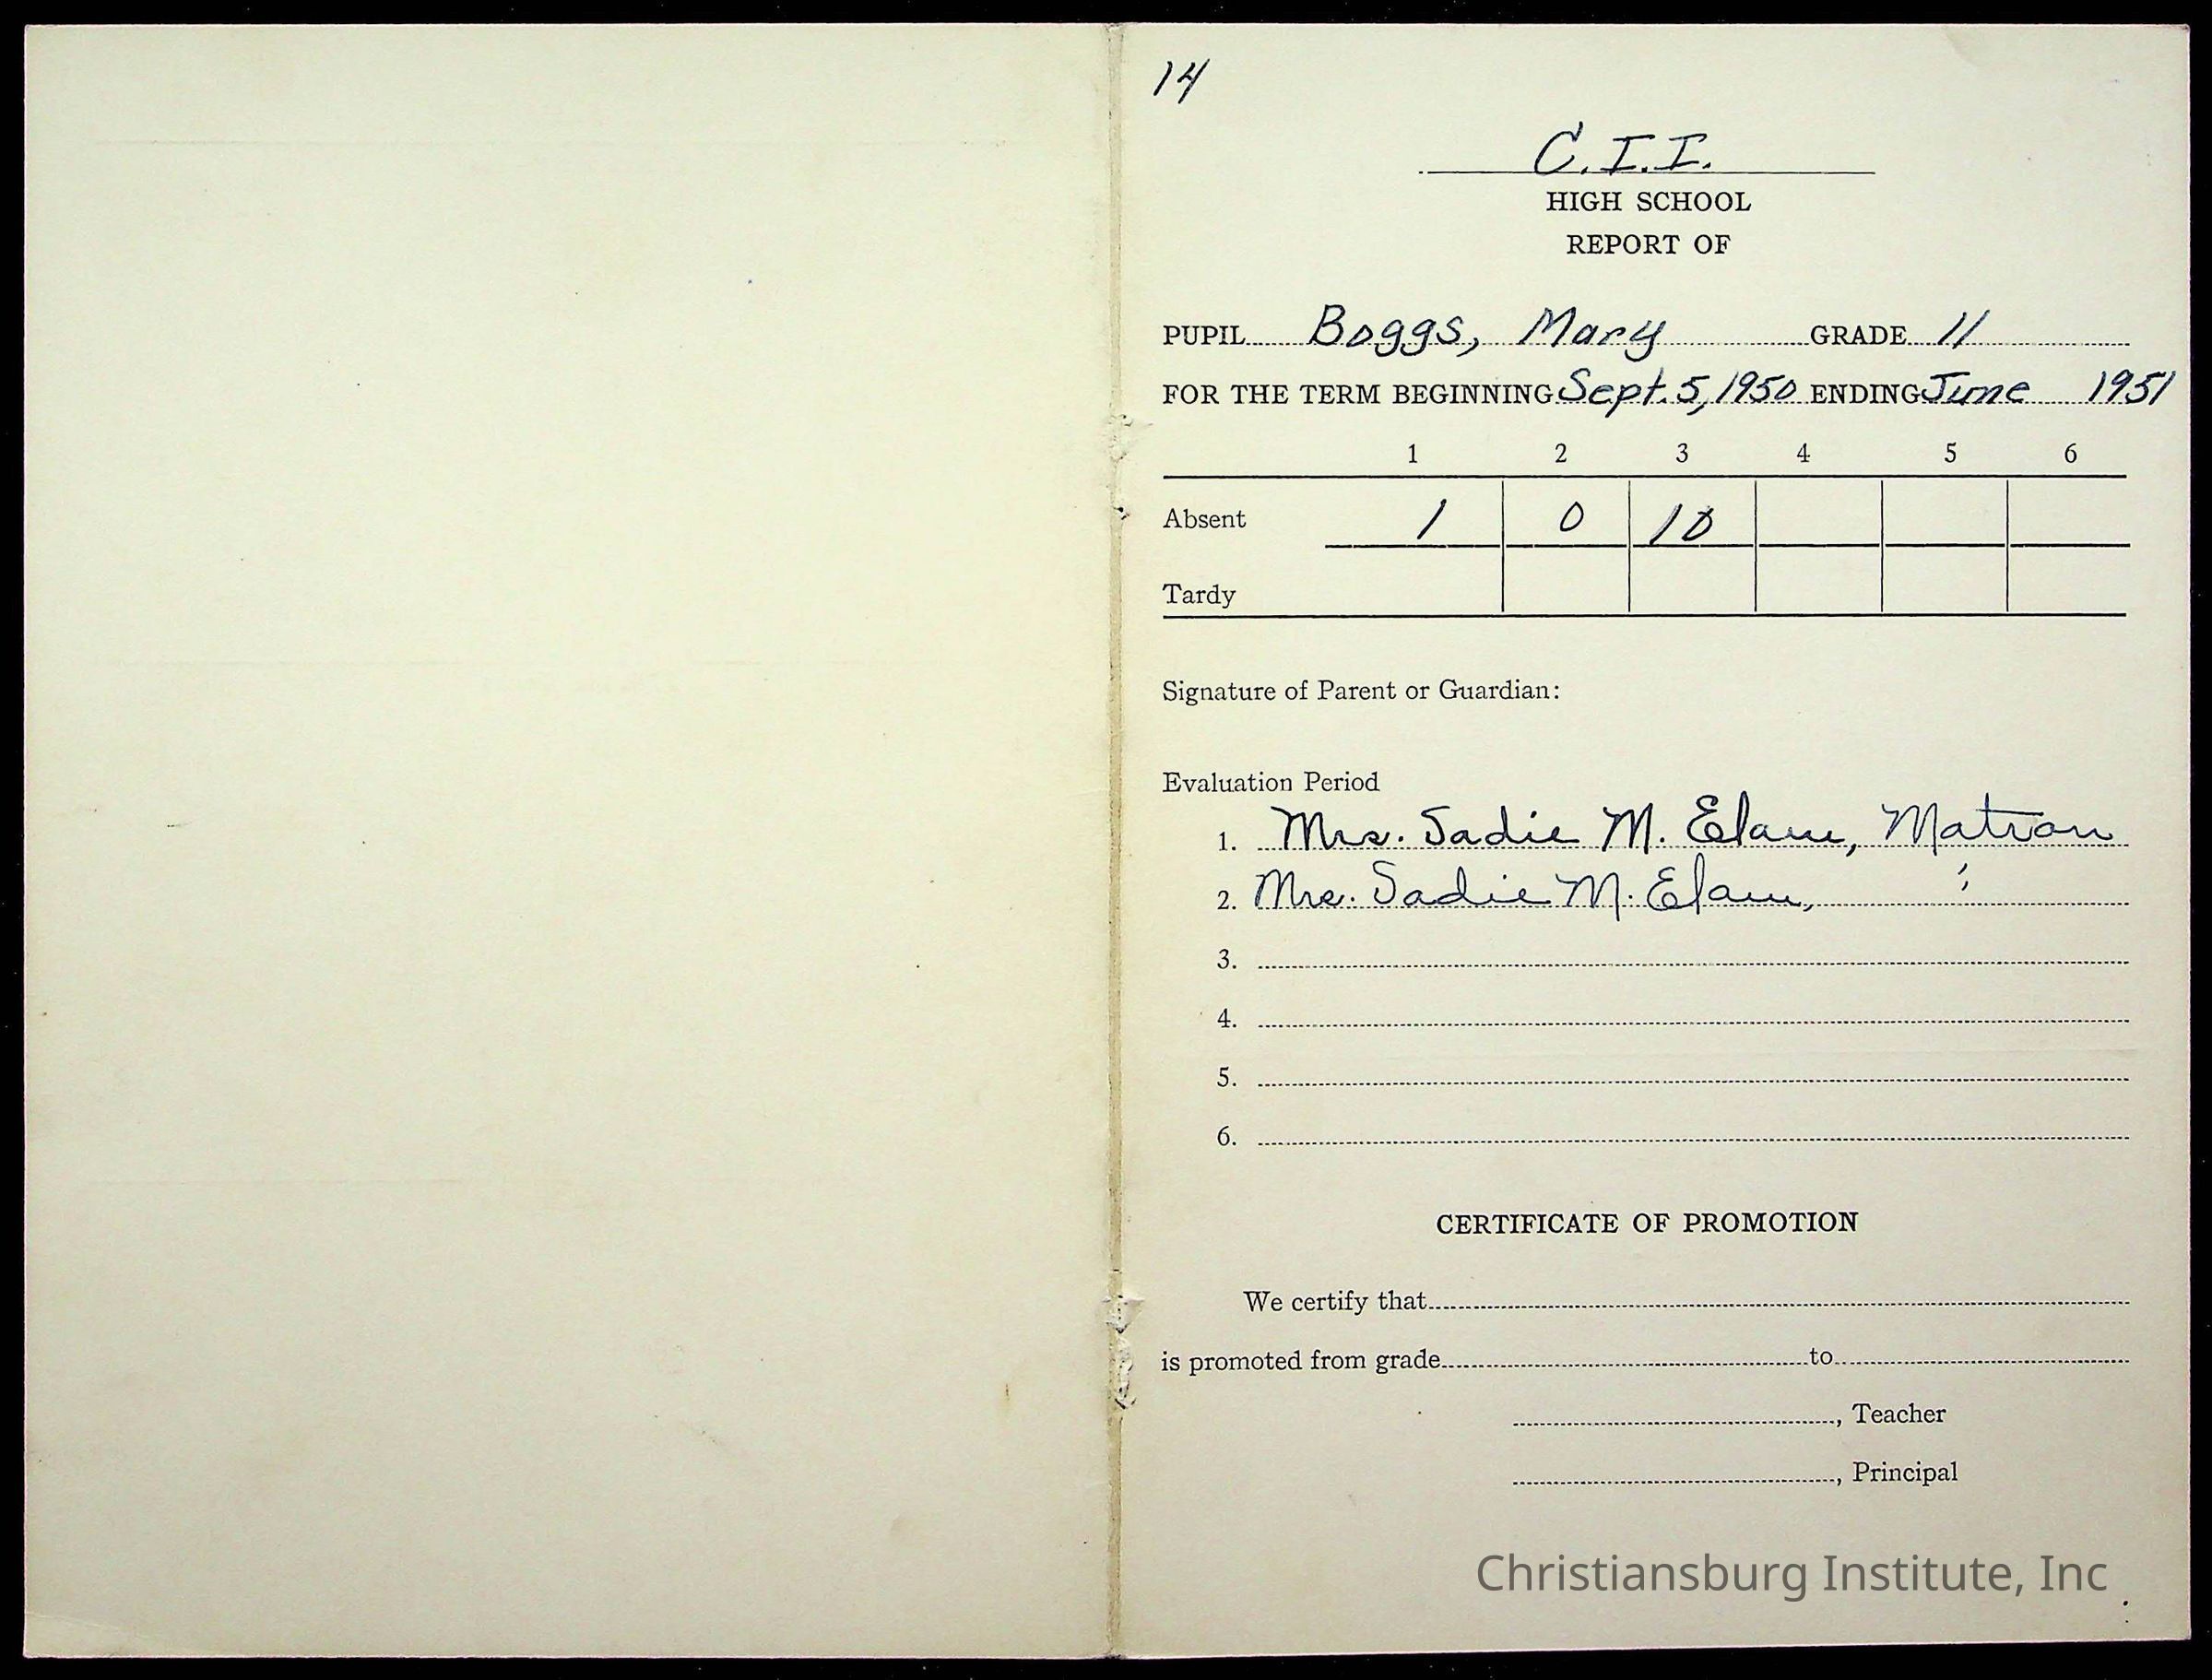 14
C.I.I.
HIGH SCHOOL
REPORT OF
PUPIL Boggs, Mary GRADE 11
FOR THE TERM BEGINNING Sept. 5, 1950 ENDING June 1951
1 2 3 4 5 6
Absent 1 0 10
Tardy
Signature of Parent or Guardian:
Evaluation Period
1. Mrs. Sadie M. Elam, Matron
2. Mrs. Sadie M. Elam, "
3.
4.
5.
6.
CERTIFICATE OF PROMOTION
We certify that
is promoted from grade to
, Teacher
, Principal
Christiansburg Institute, Inc